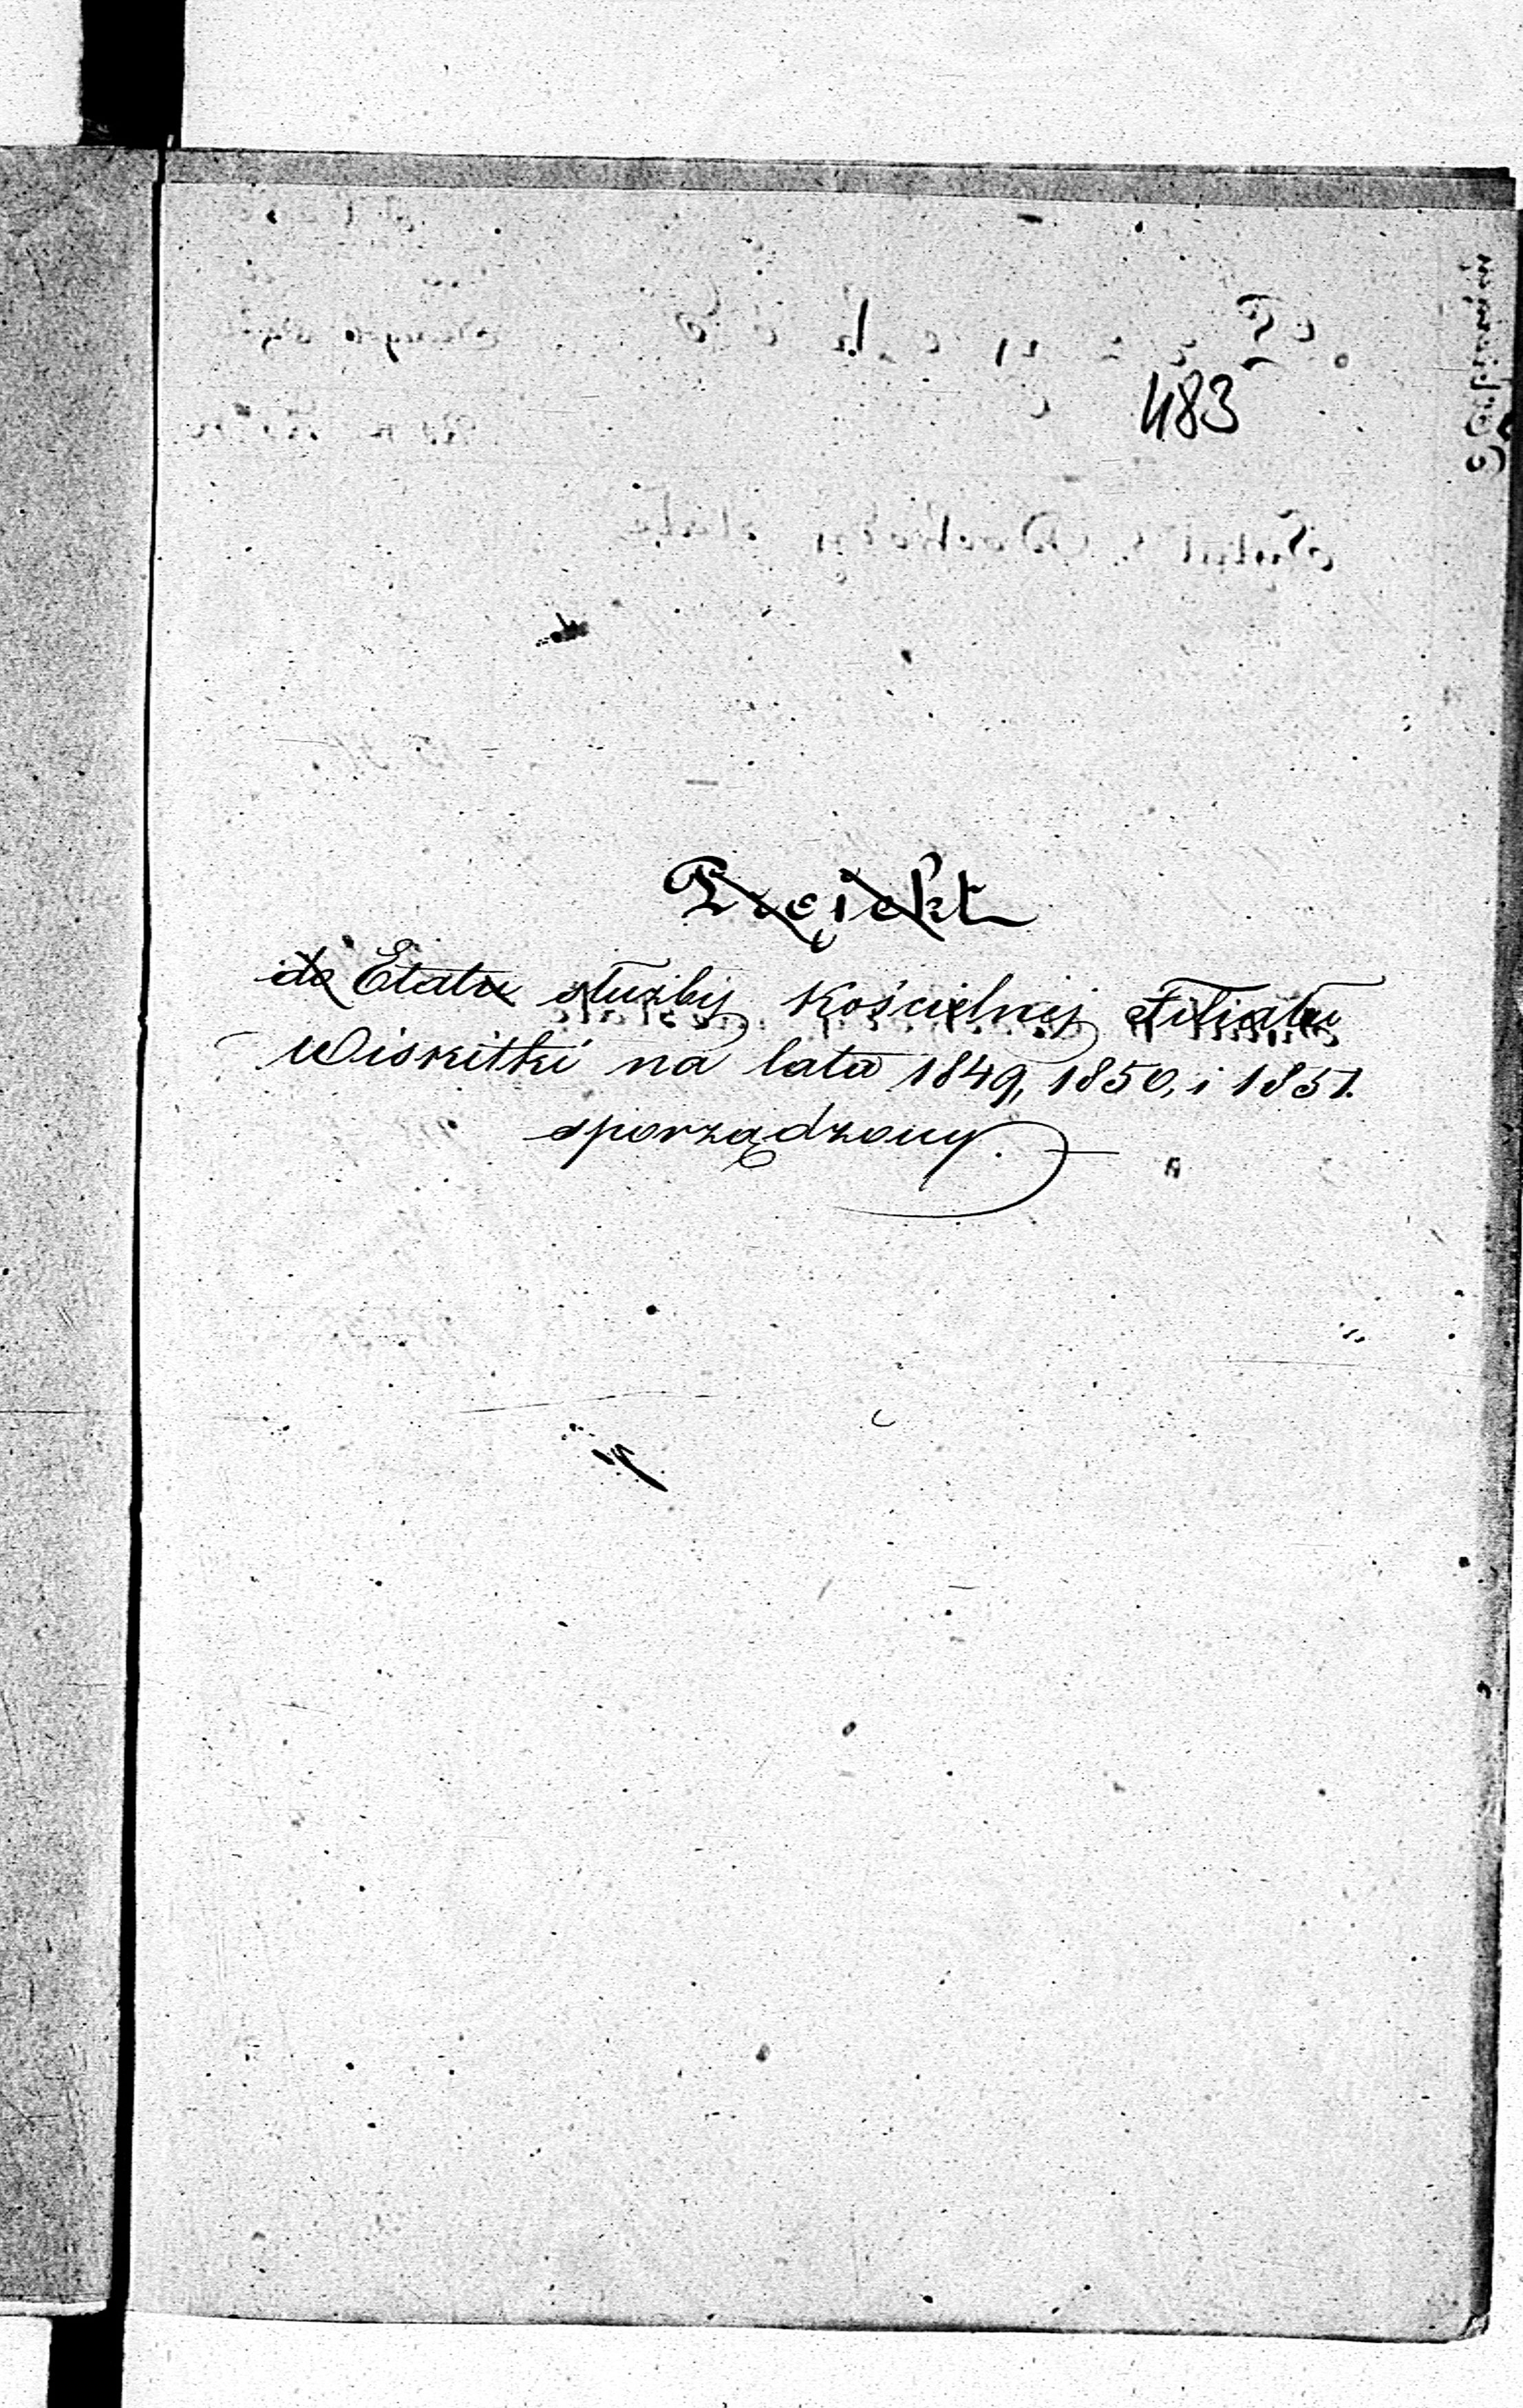 483
Projekt
do Etatu służby Kościelnej Filiału
Wiskitki na lata 1849, 1850, i 1851.
sporządzony.